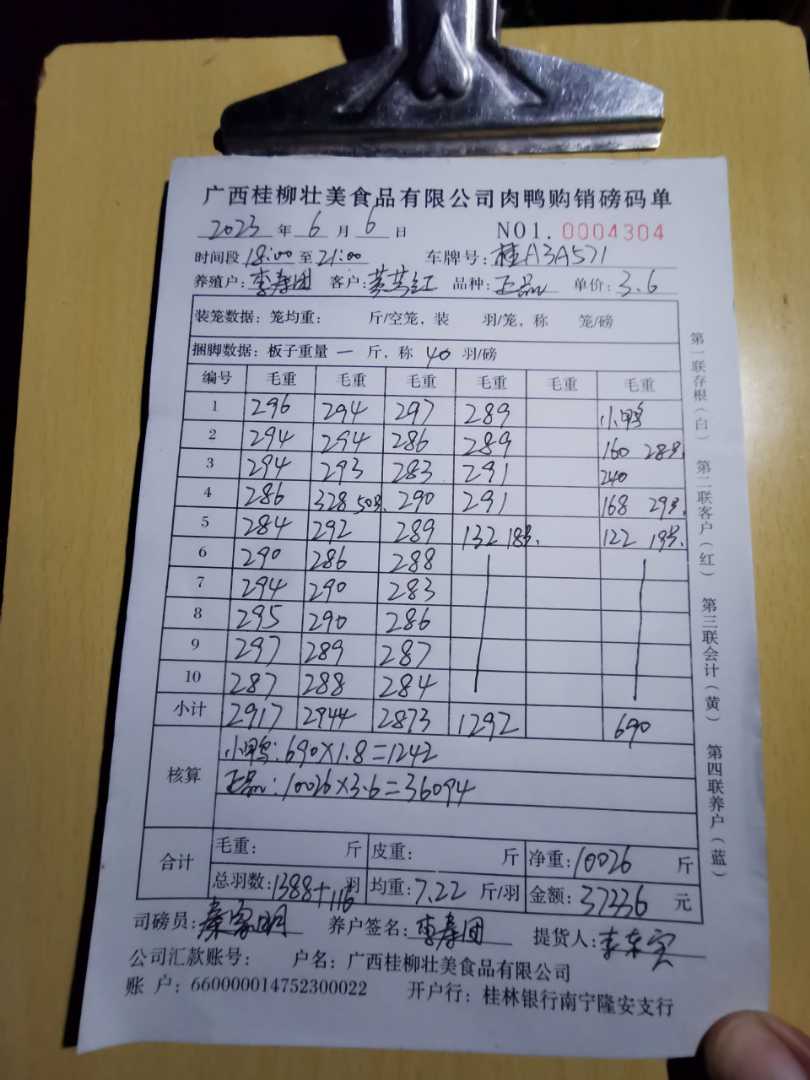 广西桂柳壮美食品有限公司肉鸭购销磅码单
2023 年 6 月 6 日 NO1. 0004304
时间段 18:00 至 21:00 车牌号: 桂A3A571
养殖户: 李寿团 客户: 黄英红 品种: 正品 单价: 3.6
装笼数据: 笼均重: 斤/空笼, 装 羽/笼, 称 笼/磅
捆脚数据: 板子重量 一 斤, 称 40 羽/磅
编号 毛重 毛重 毛重 毛重 毛重 毛重
1 296 294 297 289 小鸭
2 294 294 286 289 160 28只
3 294 293 283 291 240
4 286 328 50只 290 291 168 29只
5 284 292 289 132 18只 122 19只
6 290 286 288
7 294 290 283
8 295 290 286
9 297 289 287
10 287 288 284
小计 2917 2944 2873 1292 690
核算
小鸭: 690×1.8=1242
正品: 10026×3.6=36094
合计
毛重: 斤 皮重: 斤 净重: 10026 斤
总羽数: 1388+116 羽 均重: 7.22 斤/羽 金额: 37336 元
司磅员: 秦家明 养户签名: 李寿团 提货人: 李东
公司汇款账号: 户名: 广西桂柳壮美食品有限公司
账 户: 660000014752300022 开户行: 桂林银行南宁隆安支行
第一联存根(白) 第二联客户(红) 第三联会计(黄) 第四联养户(蓝)